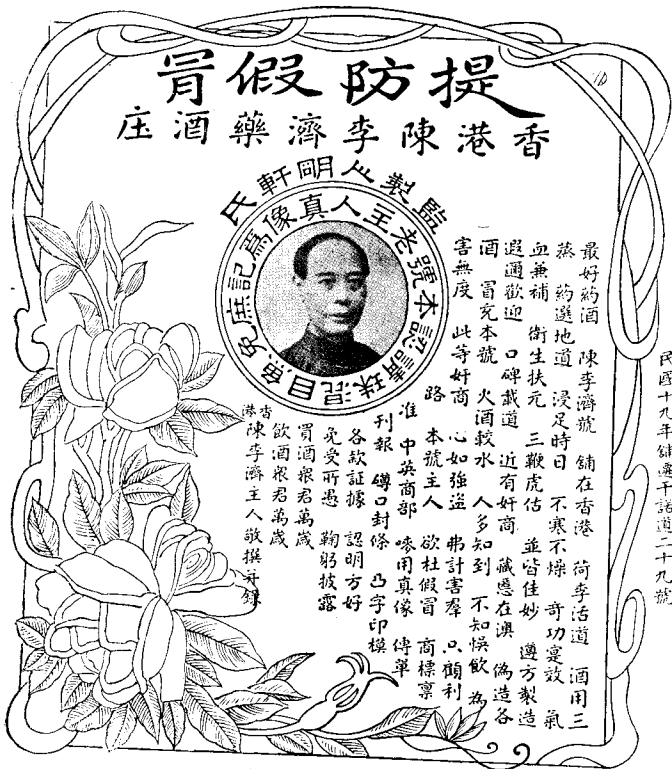 提防假冒
香港陳李濟藥酒庄
監製人明軒氏
請認本號老王人真像爲記庶免魚目混珠
最好葯酒　陳李濟號　舖在香港　荷李活道　酒用三
蒸　葯選地道　浸足時日　不寒不燥　奇功寔效　氣
血兼補　衛生扶元　三鞭虎估　並皆佳妙　遵方製造
遐邇歡迎　口碑載道　近有奸商　藏慝在澳　偽造各
酒　冒充本號　火酒較水　人多知到　不知悞飲　為
害無度　此等奸商　心如強盜　弗計害羣　只顧利
路　本號主人　欲杜假冒　商標禀
准　中英商部　嘜用真像　傳單
刊報　罇口封條　凸字印模
各款証據　認明方好
免受所愚　鞠躬披露
買酒衆君萬歲
飲酒衆君萬歲
香港陳李濟主人敬撰并錄
民國十九年舖遷干諾道二十九號